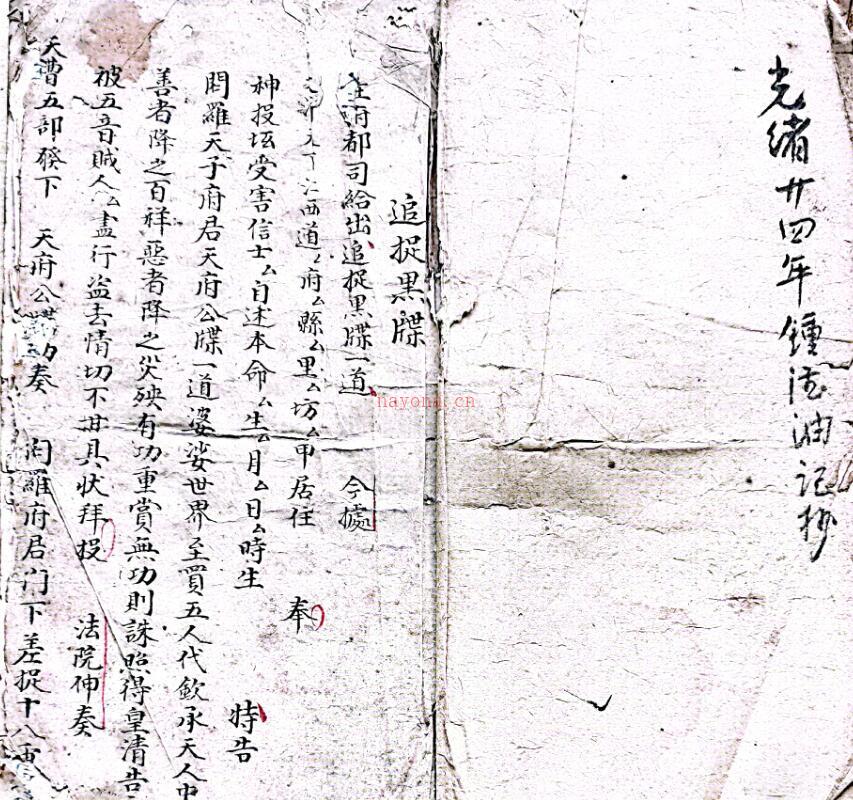 光緒廿四年鍾法油記抄
追捉黑牒
主府都司給出追捉黑牒一道 今據
江西道厶府厶縣厶里厶坊厶甲居住 奉
神投坛受害信士厶自述本命厶生厶月厶日厶時生 特告
閻羅天子府居天府公牒一道婆娑世界至買五人代欽承天人中
善者降之百祥惡者降之災殃有功重賞無功則誅照得皇清告
被五音賊人厶盡行盜去情切不甘具狀拜投 法院伸奏
天曹五部發下 天府公牒劝奏 閻羅府居门下差捉十八
hayona.cn